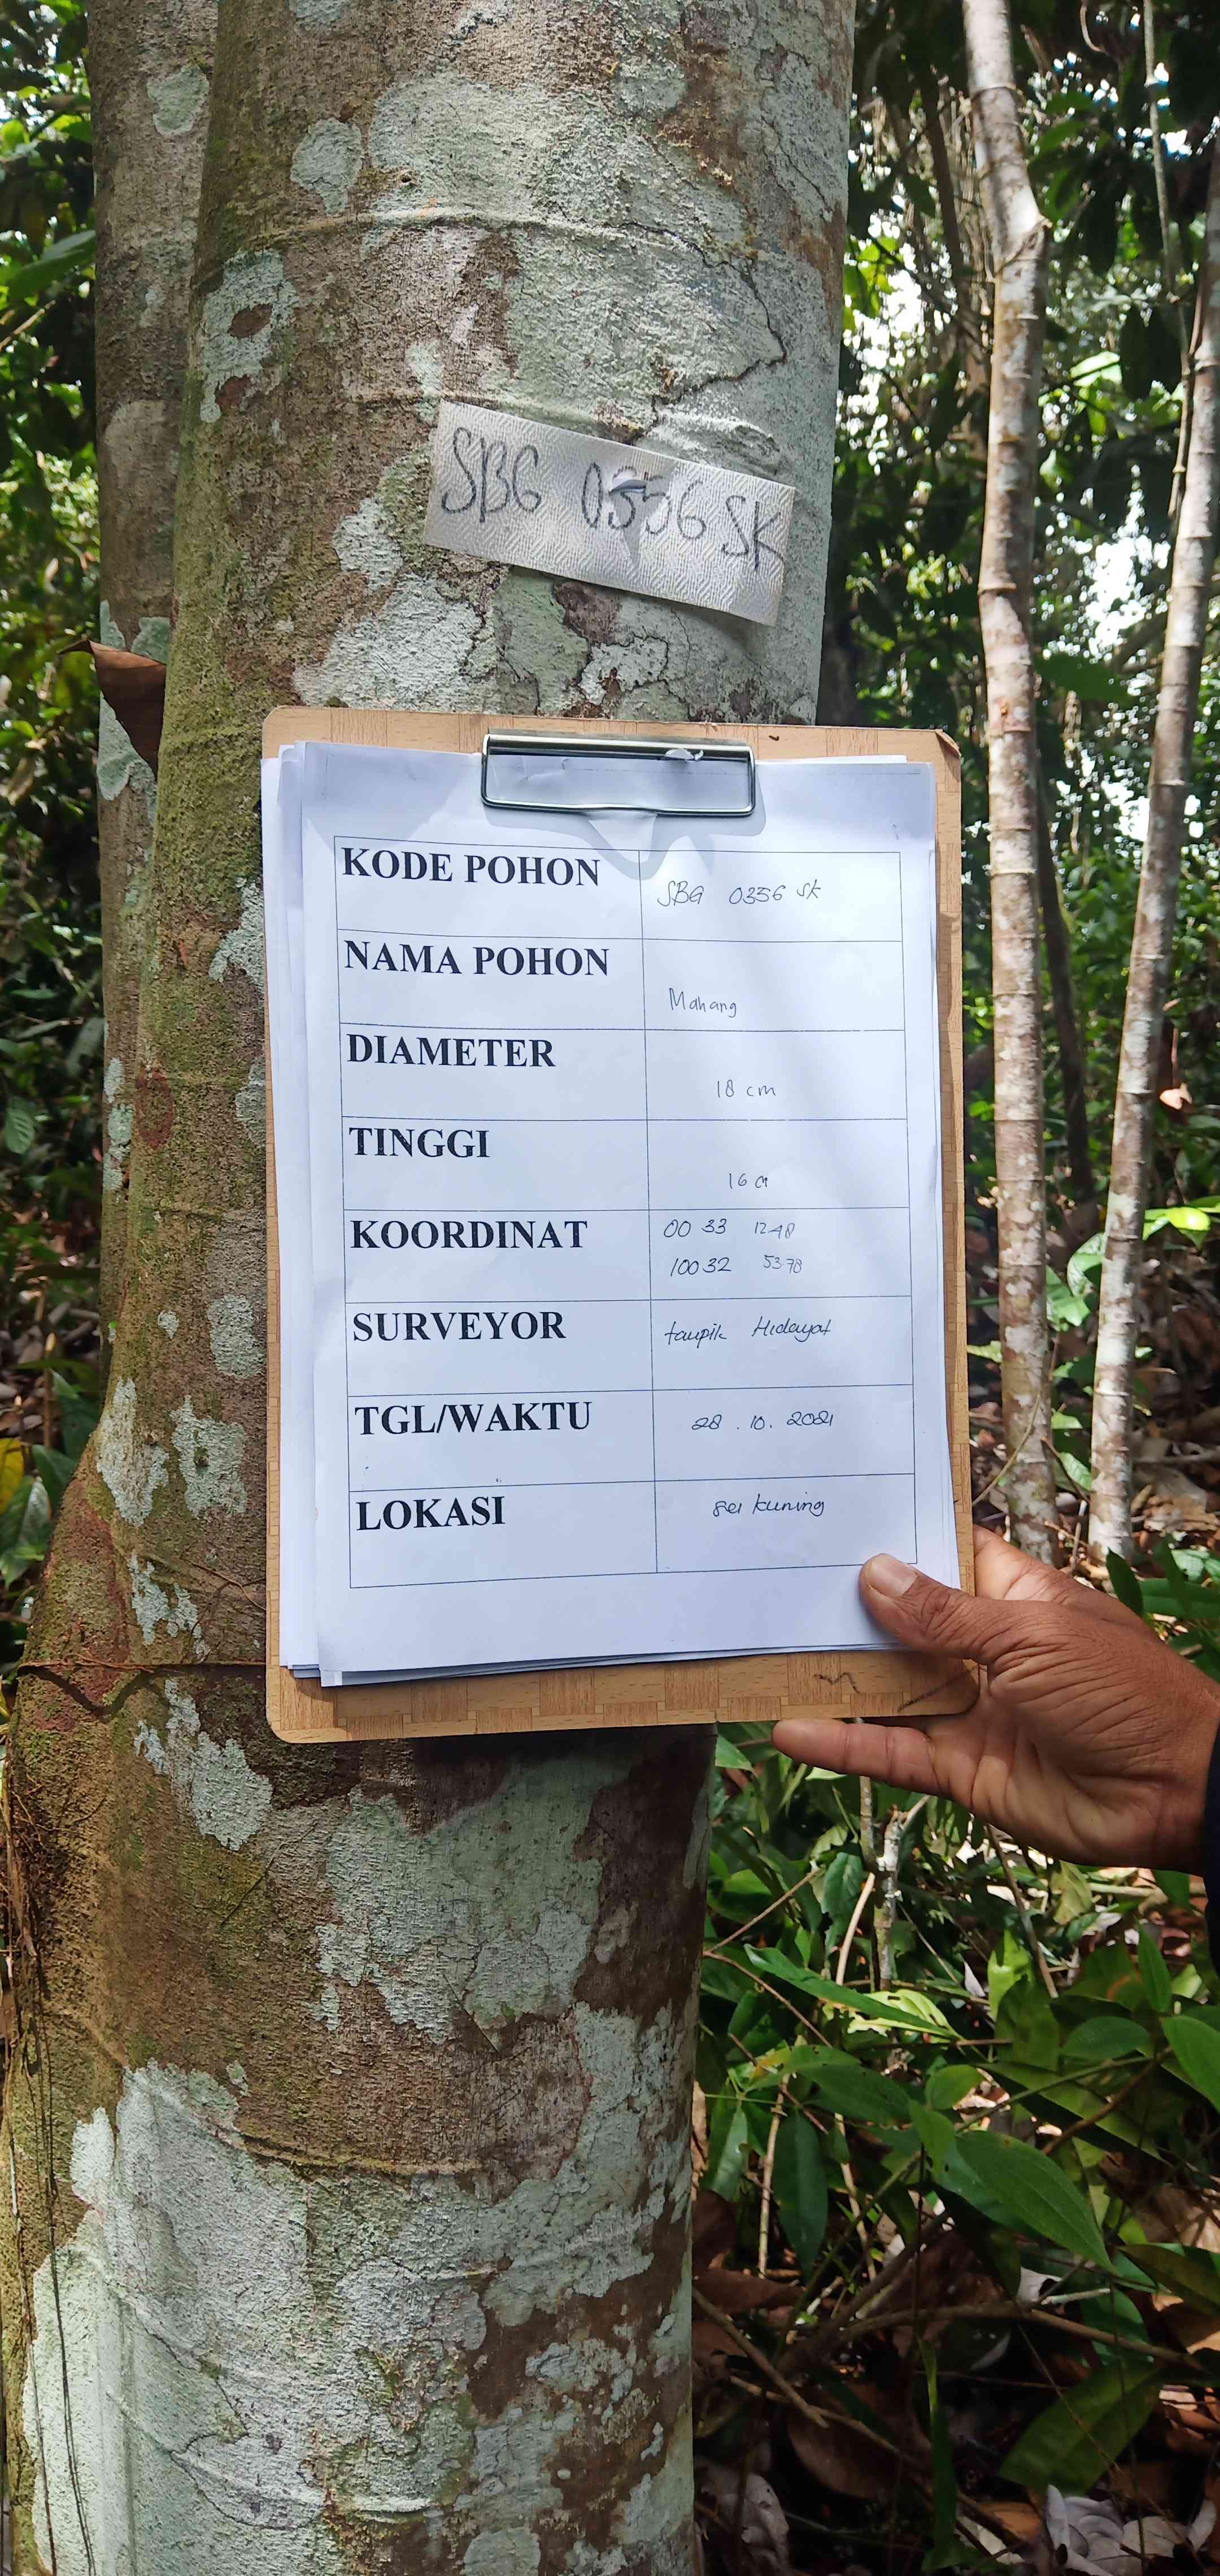 SBG 0356 SK
KODE POHON SBG 0356 SK
NAMA POHON Mahang
DIAMETER 18 cm
TINGGI 16
KOORDINAT 00 33 12.48
10032 53.78
SURVEYOR taupik Hidayat
TGL/WAKTU 28.10.2021
LOKASI sei kuning